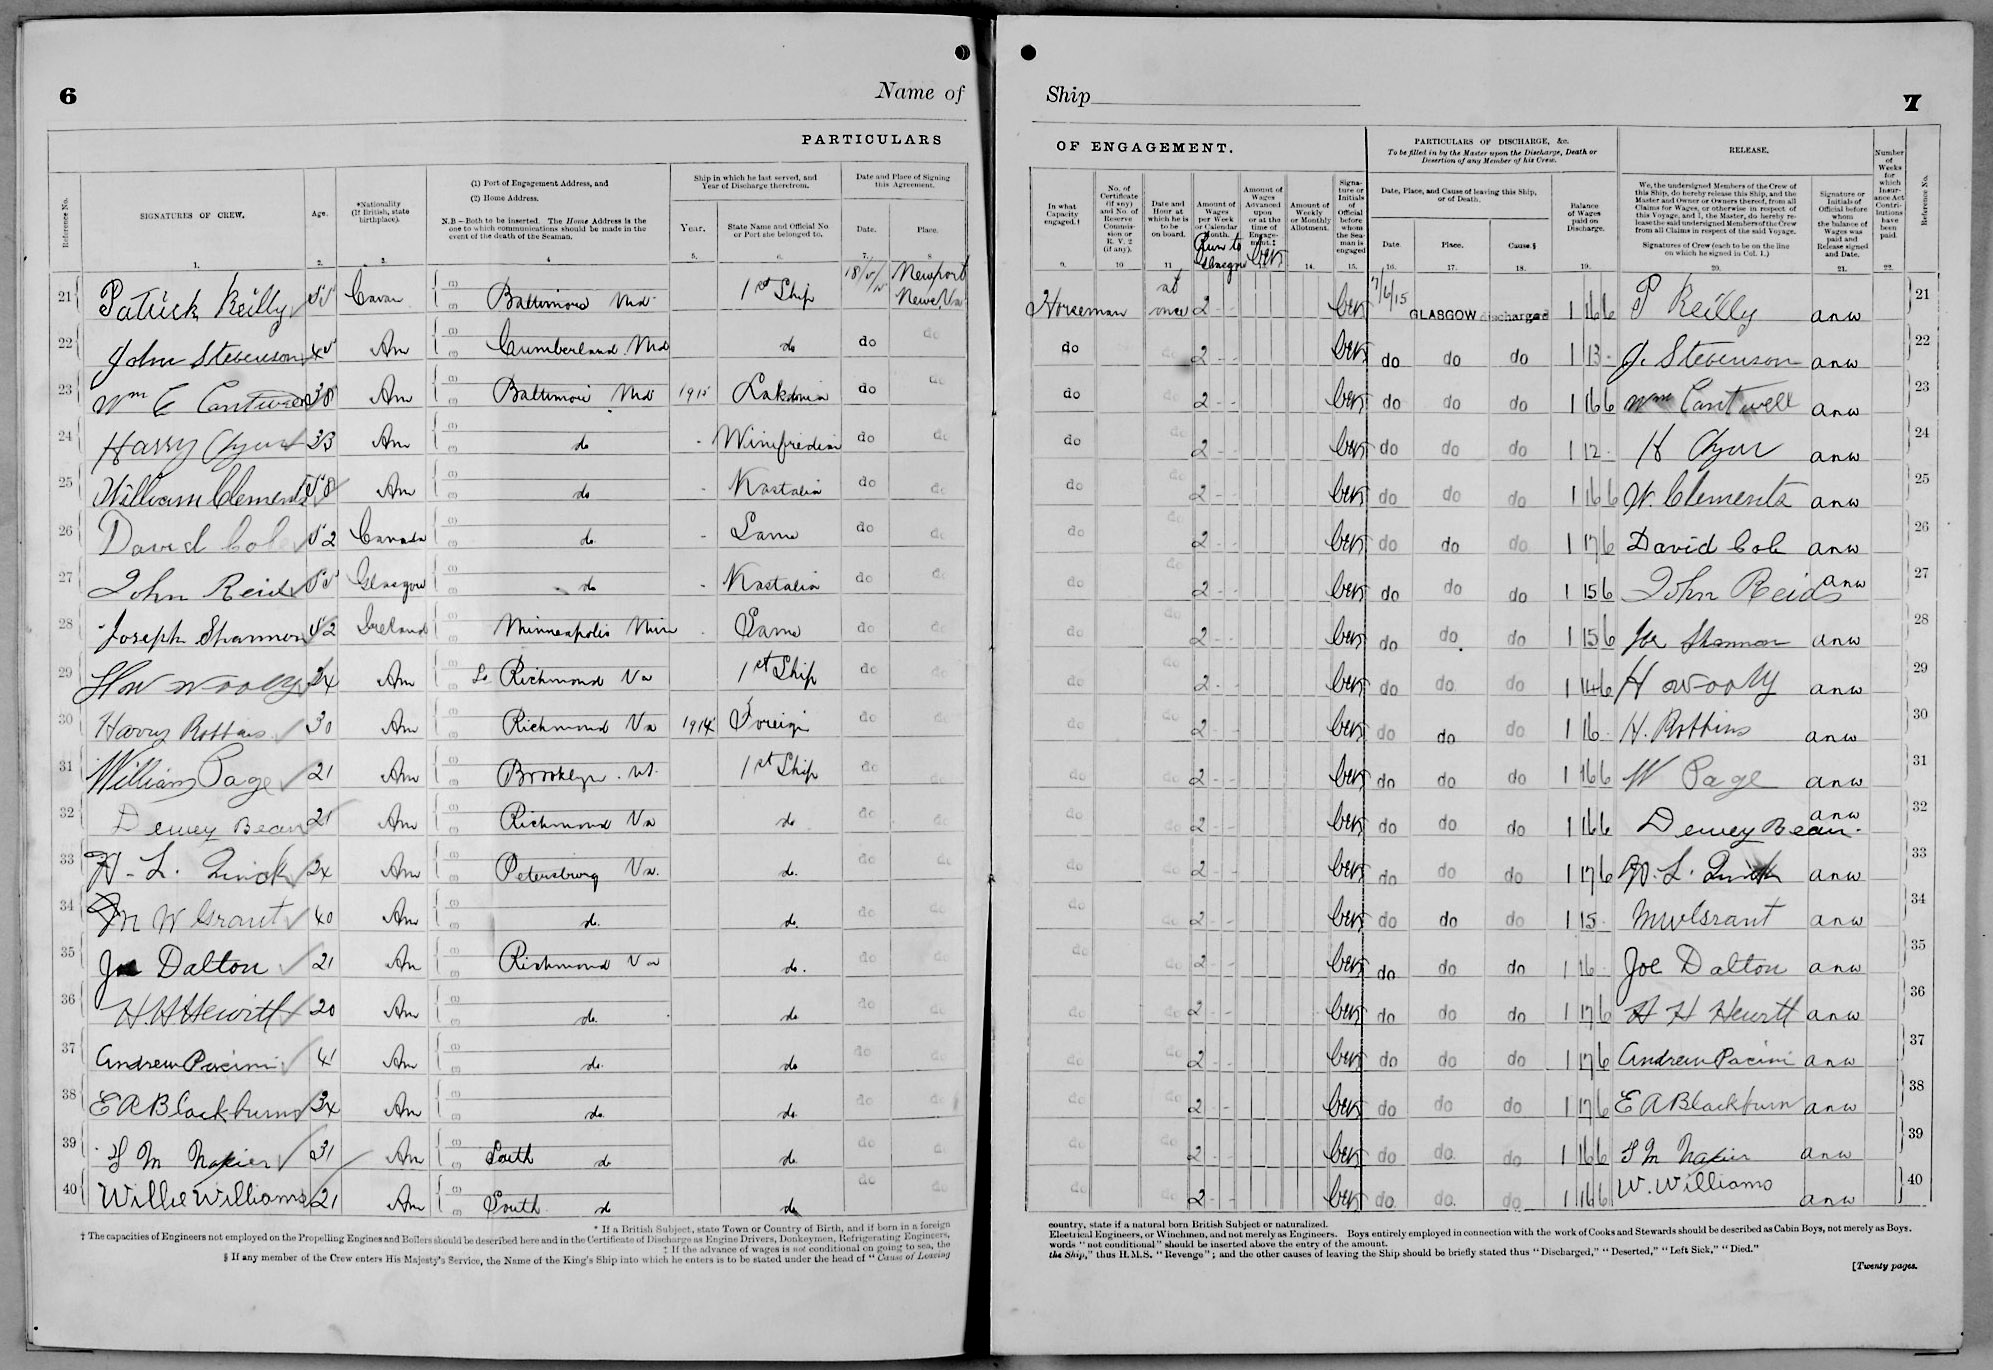 6
Name of
Ship
7
PARTICULARS
OF ENGAGEMENT.
PARTICULARS OF DISCHARGE, &c.
To be filled in by the Master upon the Discharge, Death or
Desertion of any Member of his Crew.
RELEASE.
Reference No.
SIGNATURES OF CREW.
Age.
*Nationality
(If British, state
birthplace).
(1) Port of Engagement Address, and
(2) Home Address.
N.B – Both to be inserted. The Home Address is the
one to which communications should be made in the
event of the death of the Seaman.
Ship in which he last served, and
Year of Discharge therefrom.
Year.
State Name and Official No.
or Port she belonged to.
Date and Place of Signing
this Agreement.
Date.
Place.
In what
Capacity
engaged.†
No. of
Certificate
(if any)
and No. of
Reserve
Commis-
sion or
R. V. 2
(if any).
Date and
Hour at
which he is
to be
on board.
Amount of
Wages
per Week
or Calendar
Month.
Run to
Glasgow
Amount of
Wages
Advanced
upon
or at the
time of
Engage-
ment.‡
Amount of
Weekly
or Monthly
Allotment.
Signa-
ture or
Initials
of
Official
before
whom
the Sea-
man is
engaged
Date, Place, and Cause of leaving this Ship,
or of Death.
Date.
Place.
Cause.§
Balance
of Wages
paid on
Discharge.
We, the undersigned Members of the Crew of
this Ship, do hereby release this Ship, and the
Master and Owner or Owners thereof, from all
Claims for Wages, or otherwise in respect of
this Voyage, and I, the Master, do hereby re-
lease the said undersigned Members of the Crew
from all Claims in respect of the said Voyage.
Signatures of Crew (each to be on the line
on which he signed in Col. 1.)
Signature or
Initials of
Official before
whom
the balance of
Wages was
paid and
Release signed
and Date.
Number
of
Weeks
for
which
Insur-
ance Act
Contri-
butions
have
been
paid.
Reference No.
1. 2. 3. 4 5. 6. 7. 8 9. 10 11 14. 15. 16. 17. 18. 19. 20. 21. 22.
21 Patrick Reilly 55 Cavan Baltimore Md 1st Ship Newport News Va Horseman at once 2 7/6/15 GLASGOW discharged 1 16 6 P Reilly anw 21
22 John Stevenson 45 Am Cumberland Md do do do do do 2 do do do 1 13 - J. Stevenson anw 22
23 Wm C Cantwell 38 Am Baltimore Md 1915 Lakonia do do do 2 do do do 1 16 6 Wm Cantwell anw 23
24 Harry 33 Am do - Winifredian do do do do 2 do do do 1 12 - H anw 24
25 William Clements 58 Am do - Kastalia do do do do 2 do do do 1 16 6 W. Clements anw 25
26 David Cole 52 Canada do - Same do do do do 2 do do do 1 17 6 David Cole anw 26
27 John Reid 55 Glasgow do - Kastalia do do do do 2 do do do 1 15 6 John Reid anw 27
28 Joseph Shannon 52 Ireland Minneapolis Minn - Same do do do do 2 do do do 1 15 6 Joe Shannon anw 28
29 Wooly 24 Am So Richmond Va 1st Ship do do do do 2 do do do 1 14 6 H Wooly anw 29
30 Harry Robbins 30 Am Richmond Va 1914 Foreign do do do do 2 do do do 1 16 - H. Robbins anw 30
31 William Page 21 Am Brooklyn 1st Ship do do do do 2 do do do 1 16 6 W Page anw 31
32 Dewey Bean 21 Am Richmond Va do do do do do 2 do do do 1 16 6 Dewey Bean. anw 32
33 H. L. Quick 24 Am Petersburg Va. do. do do do do 2 do do do 1 17 6 H. L. Quick anw 33
34 M W Grant 40 Am do. do. do do do do 2 do do do 1 15 - MW Grant anw 34
35 Joe Dalton 21 Am Richmond Va do. do do do do 2 do do do 1 16 - Joe Dalton anw 35
36 H H Hewitt 20 Am do. do do do do do 2 do do do 1 17 6 H H Hewitt anw 36
37 Andrew Pacini 41 Am do. do do do do do 2 do do do 1 17 6 Andrew Pacini anw 37
38 E A Blackburn 34 Am do do do do do do 2 do do do 1 17 6 E A Blackburn anw 38
39 M Napier 31 Am South do do do do do do 2 do do do 1 16 6 M Napier anw 39
40 Willie Williams 21 Am South do do do do do do 2 do do do 1 16 6 W. Williams anw 40
* If a British Subject, state Town or Country of Birth, and if born in a foreign
country, state if a natural born British Subject or naturalized.
† The capacities of Engineers not employed on the Propelling Engines and Boilers should be described here and in the Certificate of Discharge as Engine Drivers, Donkeymen, Refrigerating Engineers,
Electrical Engineers, or Winchmen, and not merely as Engineers. Boys entirely employed in connection with the work of Cooks and Stewards should be described as Cabin Boys, not merely as Boys.
‡ If the advance of wages is not conditional on going to sea, the
words "not conditional" should be inserted above the entry of the amount.
§ If any member of the Crew enters His Majesty's Service, the Name of the King's Ship into which he enters is to be stated under the head of "Cause of Leaving
the Ship," thus H.M.S. "Revenge"; and the other causes of leaving the Ship should be briefly stated thus "Discharged," "Deserted," "Left Sick," "Died."
[Twenty pages.